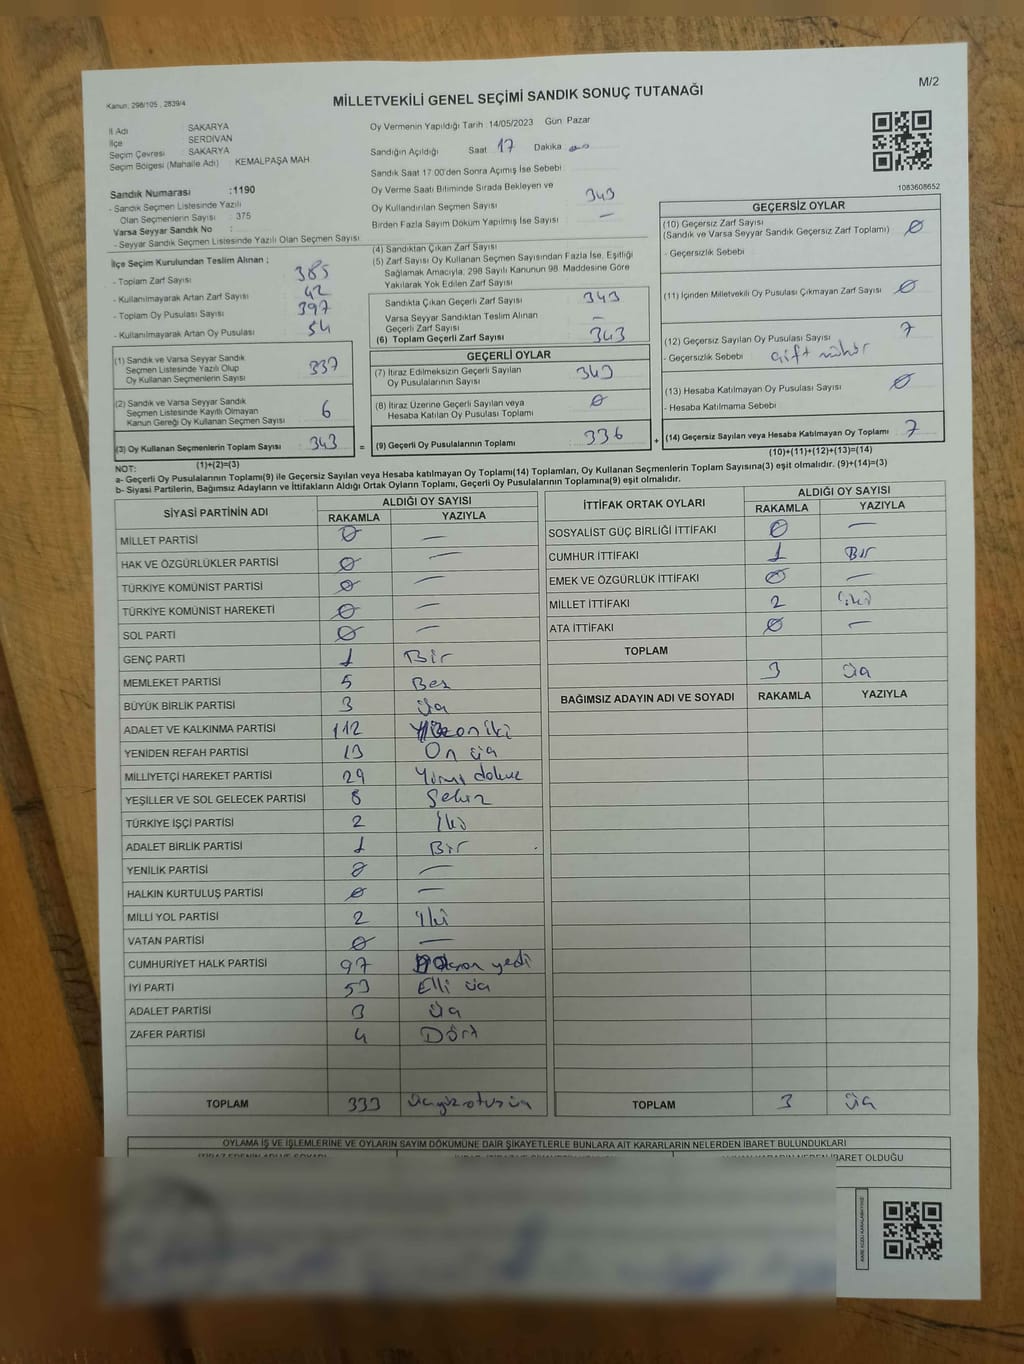 Kanun: 298/105 , 2839/4
MİLLETVEKİLİ GENEL SEÇİMİ SANDIK SONUÇ TUTANAĞI
M/2
İl Adı SAKARYA
İlçe SERDİVAN
Seçim Çevresi SAKARYA
Seçim Bölgesi (Mahalle Adı) KEMALPAŞA MAH
Sandık Numarası :1190
- Sandık Seçmen Listesinde Yazılı
Olan Seçmenlerin Sayısı : 375
Varsa Seyyar Sandık No :
- Seyyar Sandık Seçmen Listesinde Yazılı Olan Seçmen Sayısı
İlçe Seçim Kurulundan Teslim Alınan :
- Toplam Zarf Sayısı 385
- Kullanılmayarak Artan Zarf Sayısı 42
- Toplam Oy Pusulası Sayısı 397
- Kullanılmayarak Artan Oy Pusulası 54
(1) Sandık ve Varsa Seyyar Sandık
Seçmen Listesinde Yazılı Olup
Oy Kullanan Seçmenlerin Sayısı 337
(2) Sandık ve Varsa Seyyar Sandık
Seçmen Listesinde Kayıtlı Olmayan
Kanun Gereği Oy Kullanan Seçmen Sayısı 6
(3) Oy Kullanan Seçmenlerin Toplam Sayısı 343 =
(1)+(2)=(3)
Oy Vermenin Yapıldığı Tarih :14/05/2023 Gün Pazar
Sandığın Açıldığı Saat 17 Dakika
Sandık Saat 17:00'den Sonra Açımış İse Sebebi
Oy Verme Saati Bitiminde Sırada Bekleyen ve
Oy Kullandırılan Seçmen Sayısı 343
Birden Fazla Sayım Döküm Yapılmış İse Sayısı —
(4) Sandıktan Çıkan Zarf Sayısı
(5) Zarf Sayısı Oy Kullanan Seçmen Sayısından Fazla İse, Eşitliği
Sağlamak Amacıyla, 298 Sayılı Kanunun 98. Maddesine Göre
Yakılarak Yok Edilen Zarf Sayısı
Sandıkta Çıkan Geçerli Zarf Sayısı 343
Varsa Seyyar Sandıktan Teslim Alınan
Geçerli Zarf Sayısı —
(6) Toplam Geçerli Zarf Sayısı 343
GEÇERLİ OYLAR
(7) İtiraz Edilmeksizin Geçerli Sayılan
Oy Pusulalarının Sayısı 343
(8) İtiraz Üzerine Geçerli Sayılan veya
Hesaba Katılan Oy Pusulası Toplamı 0
(9) Geçerli Oy Pusulalarının Toplamı 336 +
1083608652
GEÇERSİZ OYLAR
(10) Geçersiz Zarf Sayısı
(Sandık ve Varsa Seyyar Sandık Geçersiz Zarf Toplamı) 0
- Geçersizlik Sebebi
(11) İçinden Milletvekili Oy Pusulası Çıkmayan Zarf Sayısı 0
(12) Geçersiz Sayılan Oy Pusulası Sayısı 7
- Geçersizlik Sebebi Çift mühür
(13) Hesaba Katılmayan Oy Pusulası Sayısı 0
- Hesaba Katılmama Sebebi
(14) Geçersiz Sayılan veya Hesaba Katılmayan Oy Toplamı 7
(10)+(11)+(12)+(13)=(14)
NOT:
a- Geçerli Oy Pusulalarının Toplamı(9) ile Geçersiz Sayılan veya Hesaba katılmayan Oy Toplamı(14) Toplamları, Oy Kullanan Seçmenlerin Toplam Sayısına(3) eşit olmalıdır. (9)+(14)=(3)
b- Siyasi Partilerin, Bağımsız Adayların ve İttifakların Aldığı Ortak Oyların Toplamı, Geçerli Oy Pusulalarının Toplamına(9) eşit olmalıdır.
SİYASİ PARTİNİN ADI ALDIĞI OY SAYISI
RAKAMLA YAZIYLA
MİLLET PARTİSİ 0 —
HAK VE ÖZGÜRLÜKLER PARTİSİ 0 —
TÜRKİYE KOMÜNİST PARTİSİ 0 —
TÜRKİYE KOMÜNİST HAREKETİ 0 —
SOL PARTİ 0 —
GENÇ PARTİ 1 Bir
MEMLEKET PARTİSİ 5 Beş
BÜYÜK BİRLİK PARTİSİ 3 üç
ADALET VE KALKINMA PARTİSİ 112 Yüzoniki
YENİDEN REFAH PARTİSİ 13 On üç
MİLLİYETÇİ HAREKET PARTİSİ 29 Yirmi dokuz
YEŞİLLER VE SOL GELECEK PARTİSİ 8 Sekiz
TÜRKİYE İŞÇİ PARTİSİ 2 İki
ADALET BİRLİK PARTİSİ 1 Bir
YENİLİK PARTİSİ 0 —
HALKIN KURTULUŞ PARTİSİ 0 —
MİLLİ YOL PARTİSİ 2 İki
VATAN PARTİSİ 0 —
CUMHURİYET HALK PARTİSİ 97 Doksan yedi
İYİ PARTİ 53 Elli üç
ADALET PARTİSİ 3 üç
ZAFER PARTİSİ 4 Dört
TOPLAM 333 üçyüzotuzüç
İTTİFAK ORTAK OYLARI ALDIĞI OY SAYISI
RAKAMLA YAZIYLA
SOSYALİST GÜÇ BİRLİĞİ İTTİFAKI 0 —
CUMHUR İTTİFAKI 1 Bir
EMEK VE ÖZGÜRLÜK İTTİFAKI 0 —
MİLLET İTTİFAKI 2 iki
ATA İTTİFAKI 0 —
TOPLAM
3 üç
BAĞIMSIZ ADAYIN ADI VE SOYADI RAKAMLA YAZIYLA
TOPLAM 3 üç
OYLAMA İŞ VE İŞLEMLERİNE VE OYLARIN SAYIM DÖKÜMÜNE DAİR ŞİKAYETLERLE BUNLARA AİT KARARLARIN NELERDEN İBARET BULUNDUKLARI
İBARET OLDUĞU